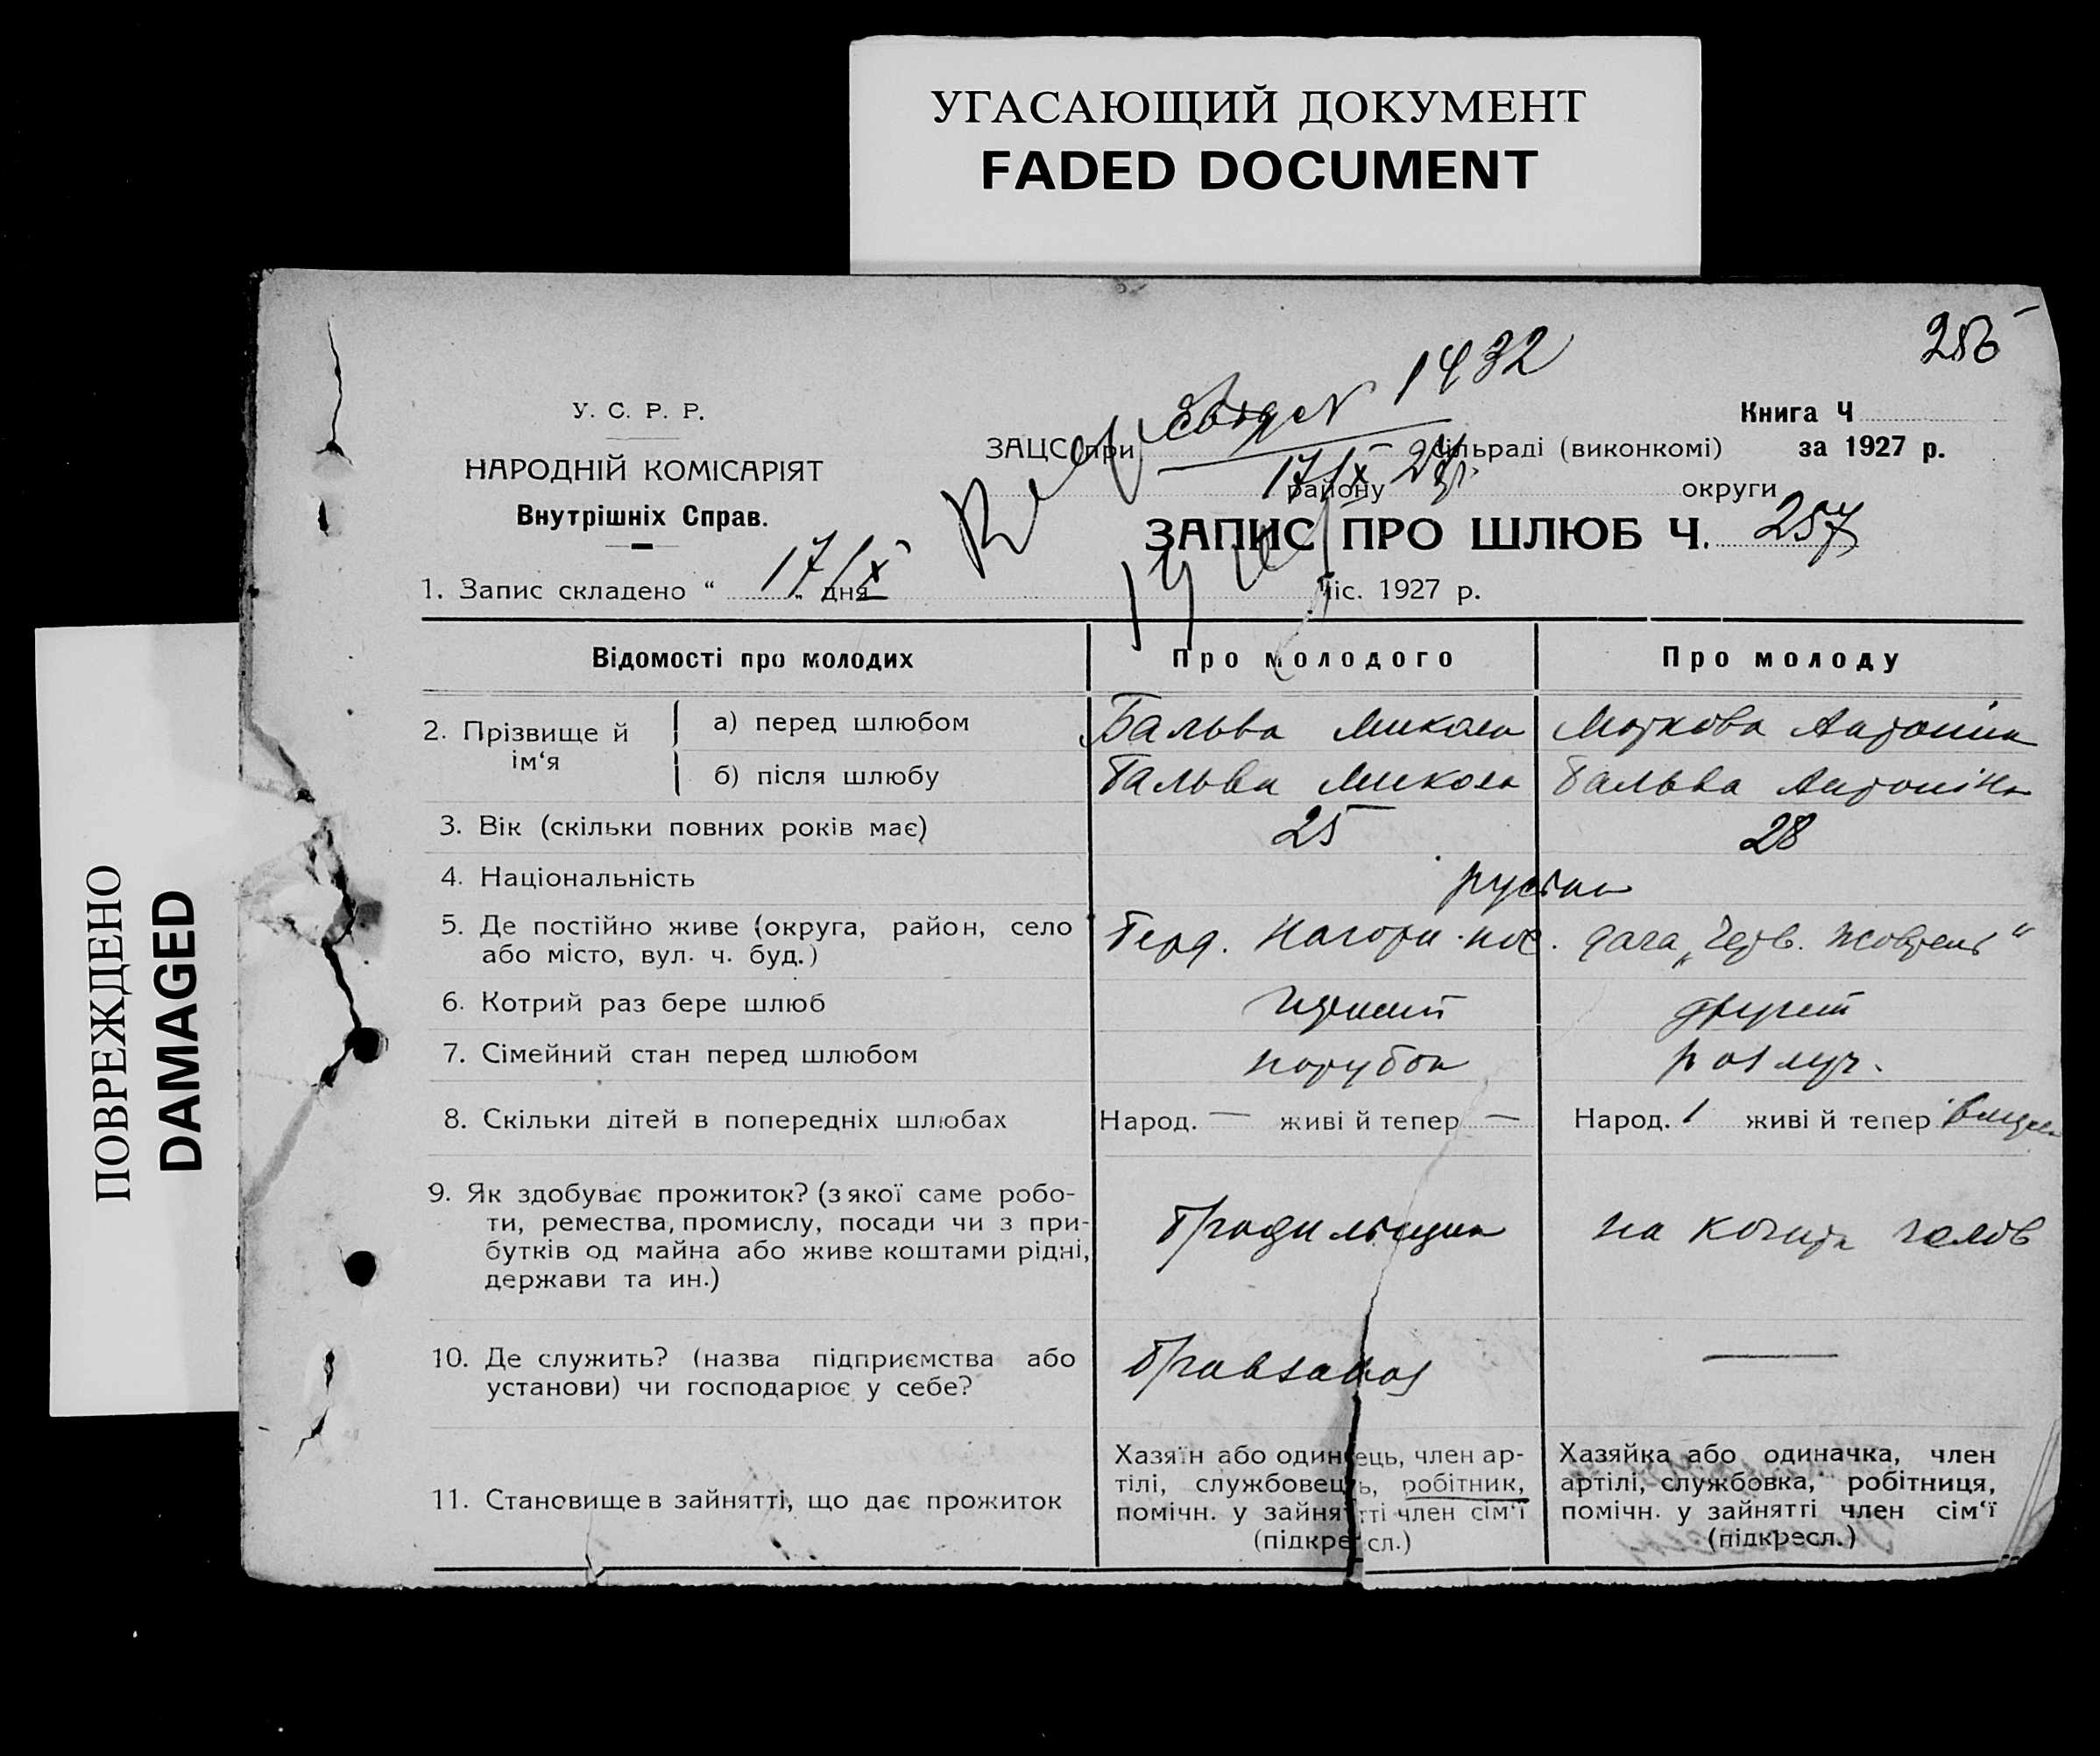 УГАСАЮЩИЙ ДОКУМЕНТ
FADED DOCUMENT
ПОВРЕЖДЕНО
DAMAGED
256
У. С. Р. Р.
НАРОДНІЙ КОМІСАРІЯТ
Внутрішніх Справ.
1432
ЗАЦС при сільраді (виконкомі)
17/X 27 р.
району округи
Книга Ч
за 1927 р.
ЗАПИС ПРО ШЛЮБ Ч. 257
1. Запис складено “ 17/X „ дня міс. 1927 р.
Відомості про молодих Про молодого Про молоду
2. Прізвище й ім‘я
а) перед шлюбом Бальва Микола Антоніна
б) після шлюбу Бальва Микола Бальва Антоніна
3. Вік (скільки повних років має) 25 28
4. Національність
5. Де постійно живе (округа, район, село Нагорн. пос. дача „Черв. Жовтень“
або місто, вул. ч. буд.)
6. Котрий раз бере шлюб другий
7. Сімейний стан перед шлюбом парубок розлуч.
8. Скільки дітей в попередніх шлюбах Народ. — живі й тепер — Народ. 1 живі й тепер
9. Як здобуває прожиток? (з якої саме робо-
ти, ремества, промислу, посади чи з при-
бутків од майна або живе коштами рідні,
держави та ин.)
на
10. Де служить? (назва підприємства або
установи) чи господарює у себе?
—
11. Становище в зайнятті, що дає прожиток
Хазяїн або одинець, член ар-
тілі, службовець, робітник,
помічн. у зайнятті член сім‘ї
(підкресл.)
Хазяйка або одиначка, член
артілі, службовка, робітниця,
помічн. у зайнятті член сім‘ї
(підкресл.)